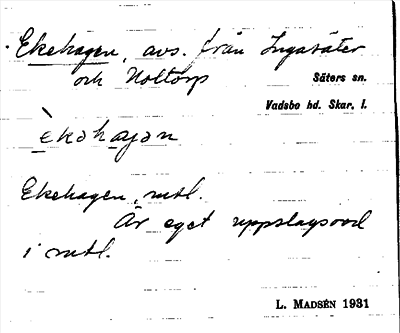 Ekehagen, avs. från Ingasäter
och Holtorp
Säters sn.
Vadsbo hd. Skar. l.
èkəhagən
Ekehagen, mtl.
Är eget uppslagsord
i mtl.
L. MADSÉN 1931